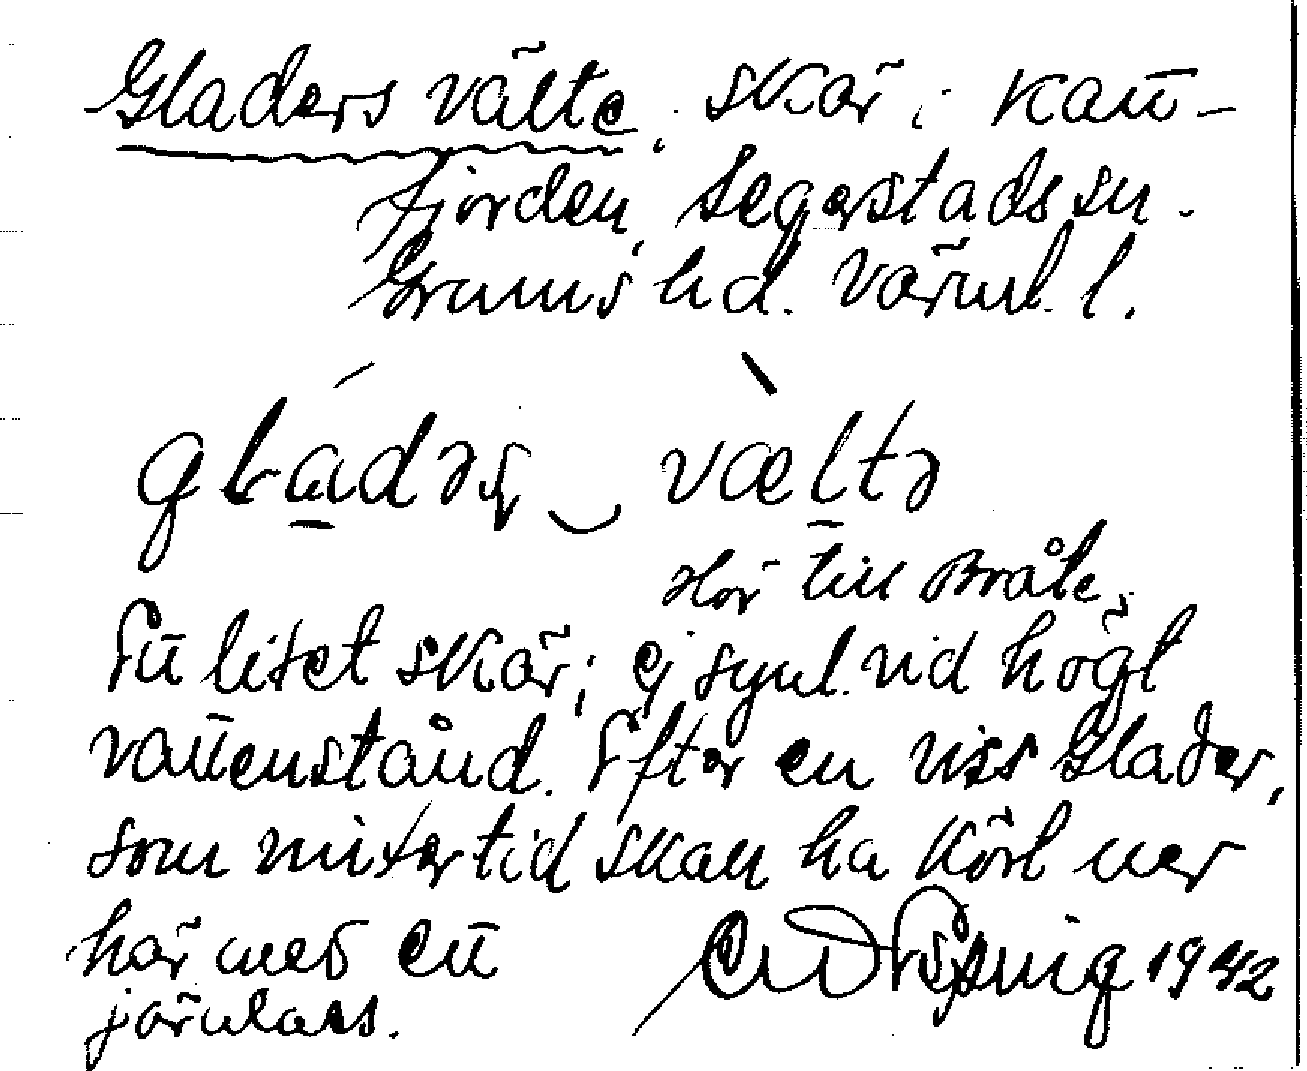 Gladers välte, skär i Katt-
fjorden, Segerstads sn.
Grums hd. Värml. l.
glader välte
Hör till Bråte.
Ett litet skär; ej synl. vid högt
vattenstånd. Efter en viss Glader,
som vintertid skall ha kört ner
här med ett
järnlass.
1942